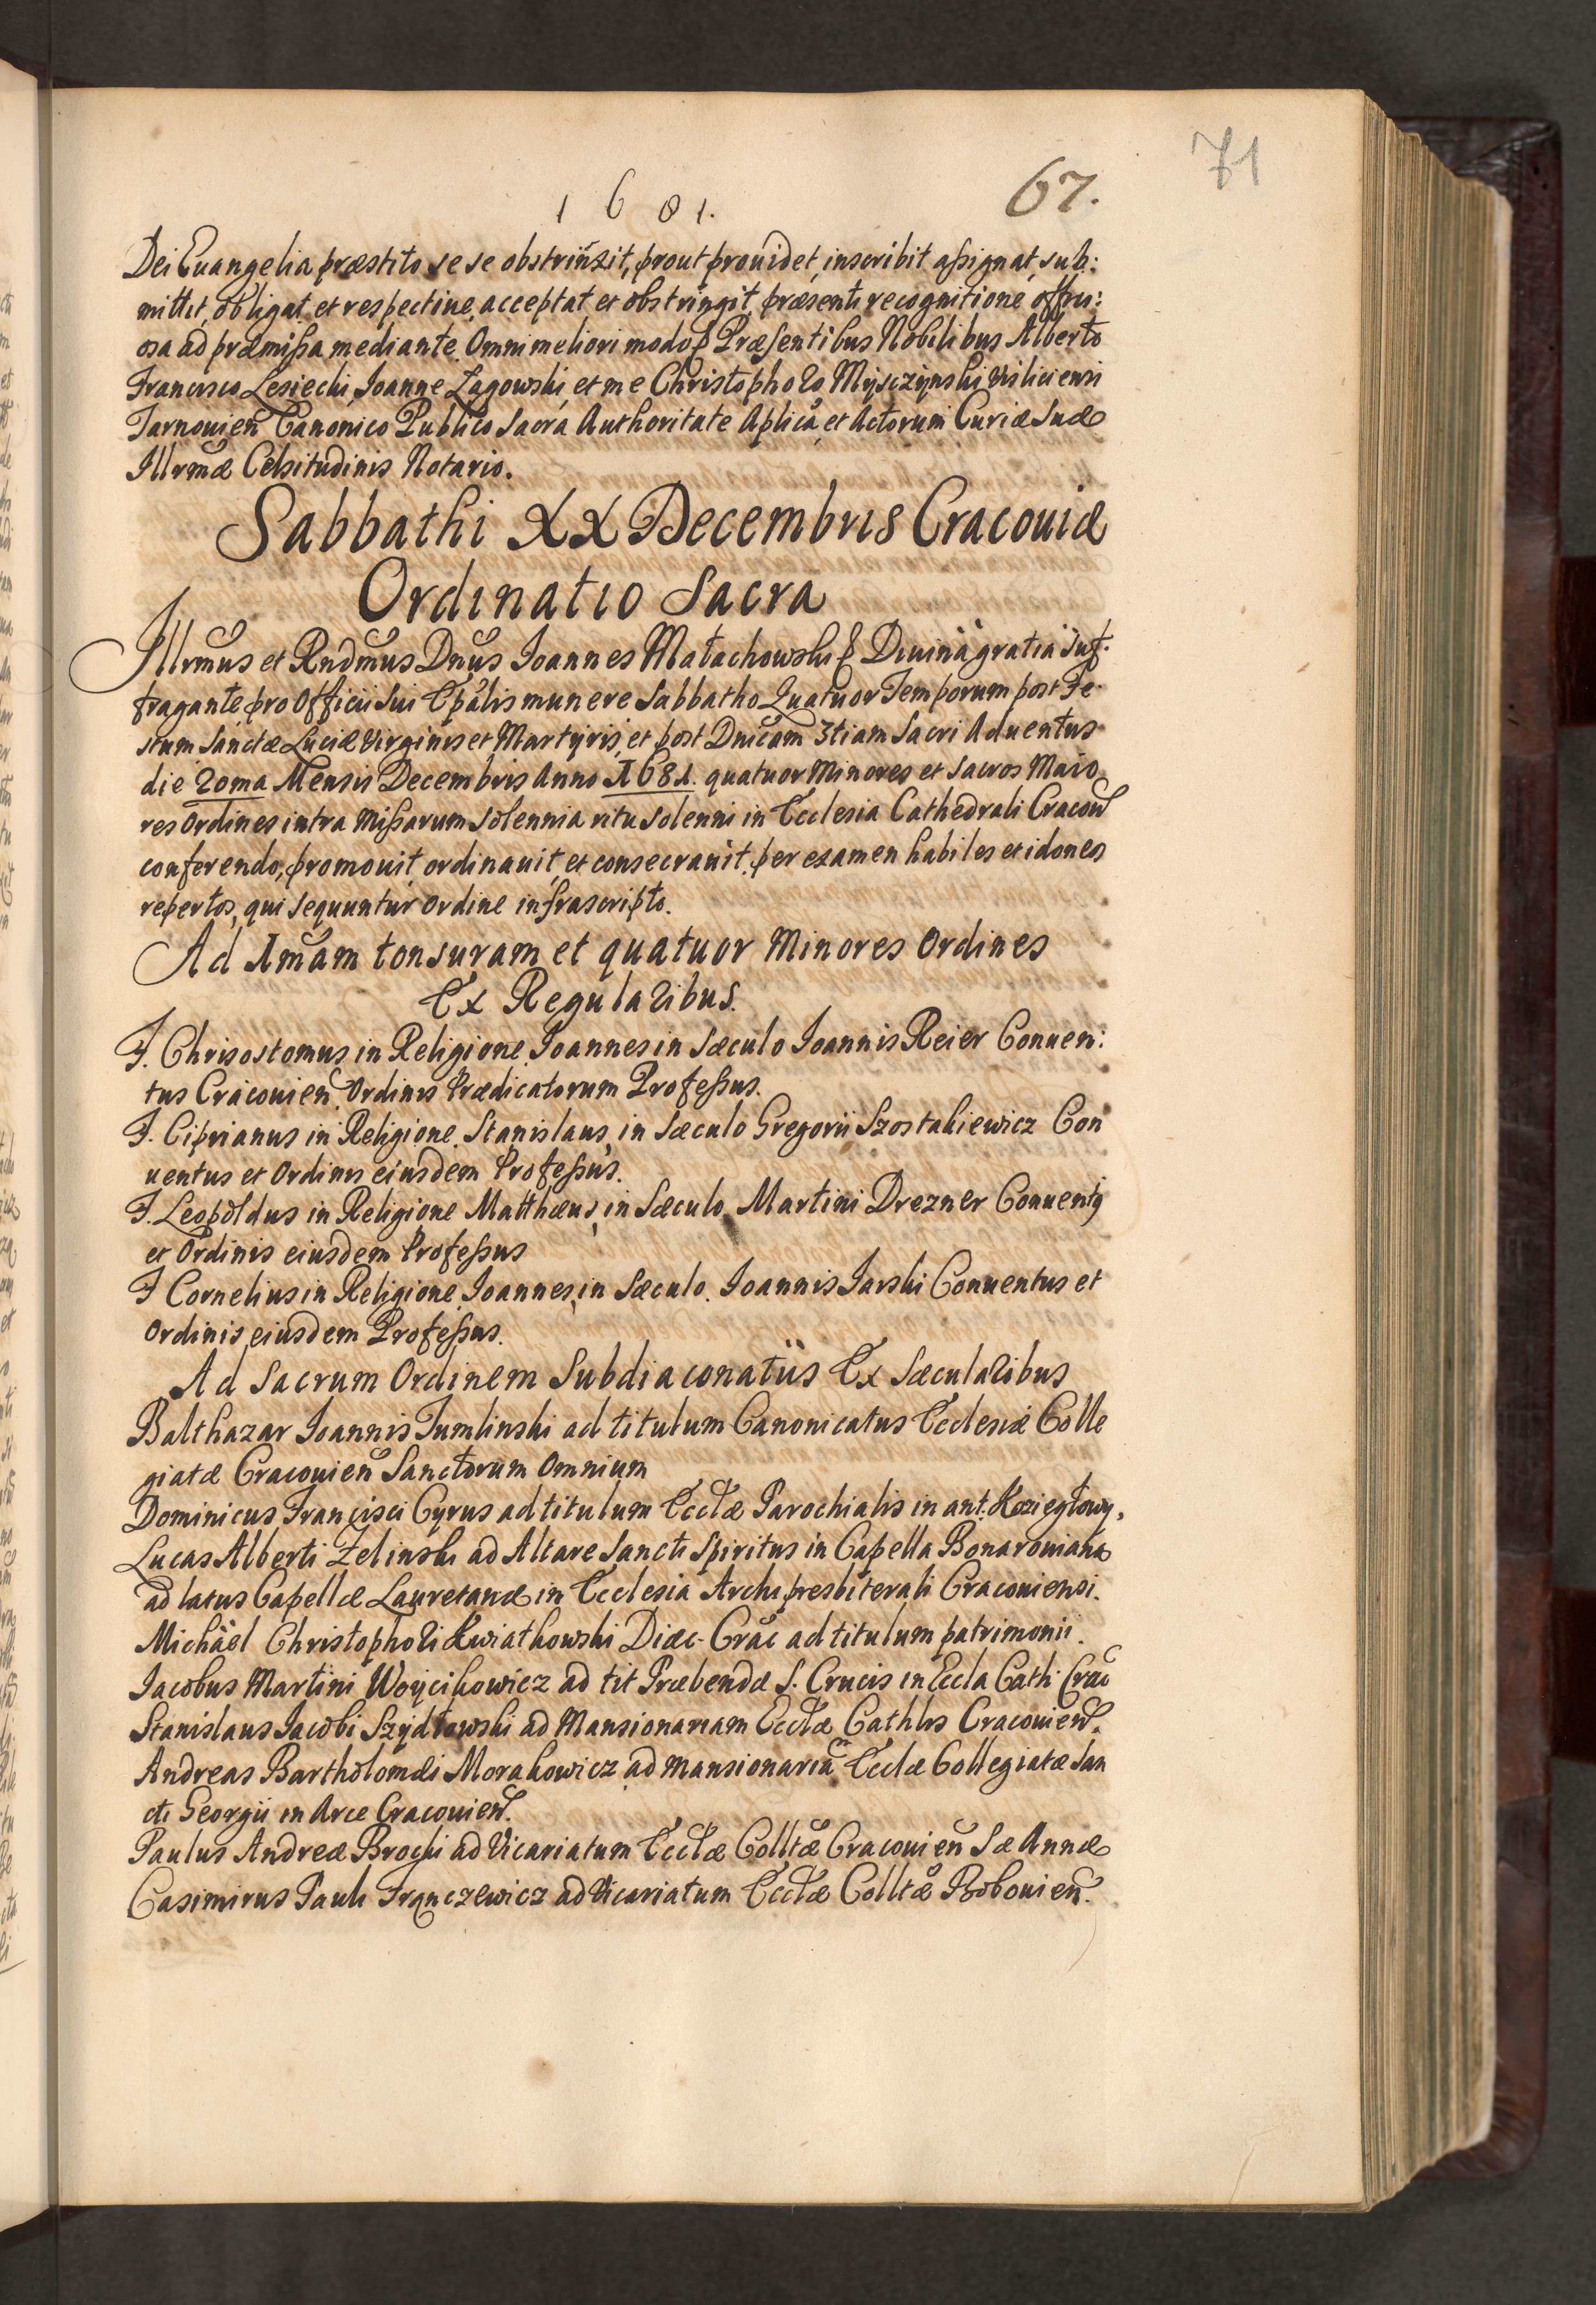 71
67.
1681.
Dei Euangelia præstito se se obstrinxit, prout prouidet, inscribit assignat, sub:
mittit, obligat et respectiue, acceptat et obstringit, præsenti recognitione offici:
osa ad præmissa mediante. Omni meliori modo Præsentibus Nobilibus Alberto
Francisco Lesiecki, Joanne Łagowski, et me Christophoro Mysczynski Visliciensi
Tarnouien Canonico Publico Sacra Authoritate Aplica, et Actorum Curiæ Suæ
Illrmæ Celsitudinis Notario.
Sabbathi XX Decembris Cracouiæ
Ordinatio Sacra
Illrmus et Rndmus Dnus Joannes Małachowski Diuina gratia suf:
fragante, pro Officii sui Epalis munere Sabbatho Quatuor Temporum post Fe:
stum Sanctæ Luciæ Virginis et Martyris, et post Dnicam 3tiam Sacri Aduentus
die 20ma Mensis Decembris Anno 1681. quatuor Minores et Sacros Maio
res Ordines intra Missarum Solennia ritu solenni in Ecclesia Cathedrali Cracou
conferendo, promouit, ordinauit, et consecrauit, per examen habiles et idoneos
repertos, qui sequuntur ordine infrascripto.
Ad 1mam tonsuram et quatuor Minores Ordines
Ex Regularibus.
F. Chrisostomus in Religione Joannes in Sæculo Joannis Reier Conuen:
tus Cracouien Ordinis Prædicatorum Professus.
F. Ciprianus in Religione, Stanislaus in Sæculo Gregorii Szostakiewicz Con
uentus et Ordinis eiusdem Professus.
F. Leopoldus in Religione Matthæus, in Sæculo Martini Drezner Conuentq
et Ordinis eiusdem Professus
F Cornelius in Religione Joannes, in Sæculo Joannis Jarski Conuentus et
Ordinis eiusdem Professus.
Ad Sacrum Ordinem Subdiaconatûs Ex Sæcularibus
Balthazar Joannis Tumlinski ad titulum Canonicatus Ecclesiæ Colle
giatæ Cracouien Sanctorum Omnium
Dominicus Francisci Cyrus ad titulum Eccłæ Parochialis in ant. Koziegłowy,
Lucas Alberti Zelinski ad Altare Sancti Spiritus in Capella Bonarouiana
ad latus Capellæ Lauretanæ in Ecclesia Archipresbiterali Cracouiensi.
Michael Christophori Kwiatkowski Diæc. Crac ad titulum patrimonii.
Jacobus Martini Woycikowicz ad tit Præbendæ S. Crucis in Eccla Cath. Crac
Stanislaus Jacobi Szydłowski ad Mansionariam Eccłæ Cathlis Cracouien.
Andreas Bartholomæi Morakowicz ad mansionariam Ecclæ Collegiatæ San
cti Georgii in Arce Cracouien.
Paulus Andreæ Brocki ad Vicariatum Eccłæ Colltæ Cracouien Sæ Annæ
Casimirus Pauli Franczewicz ad Vicariatum Eccłæ Colltæ Bobouien.